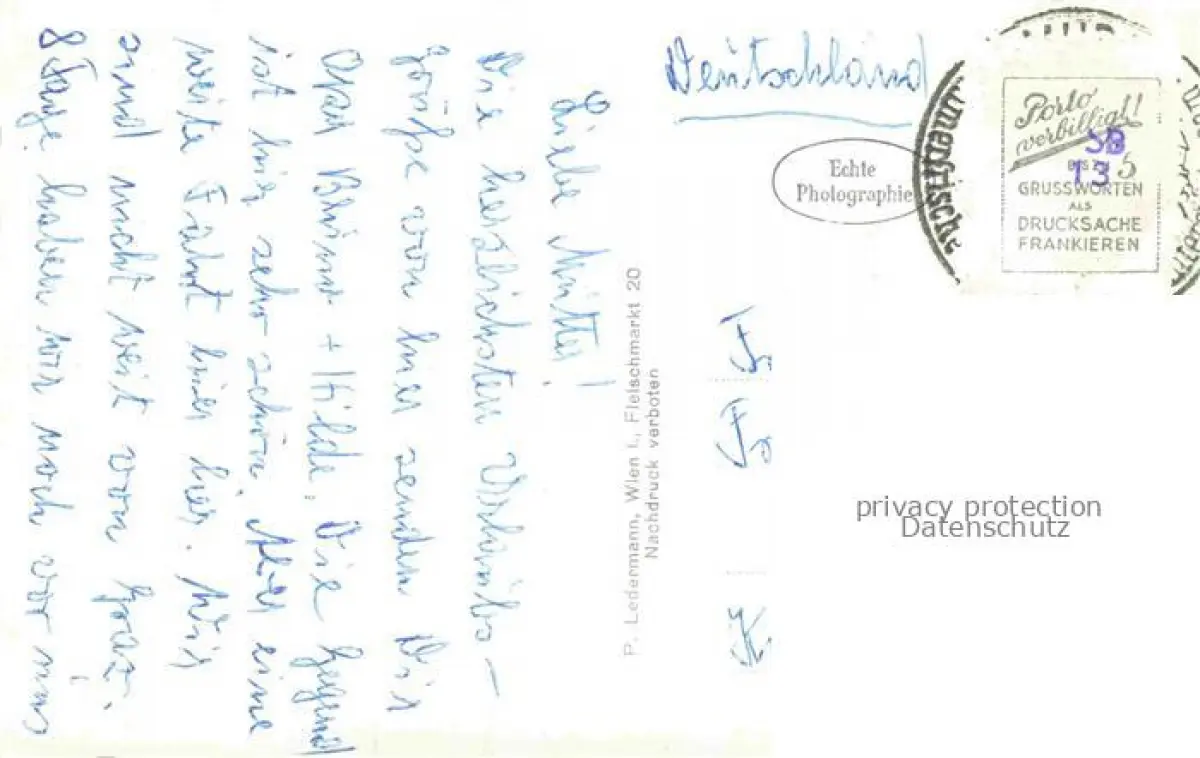 Liebe Mutter!
Die herzlichsten Urlaubs-
grüße von hier senden Dir
Opa Blum + Hilde. Die Gegend
ist hier sehr schön. Aber eine
weite Fahrt hier her. Wir
sind nicht weit von Graz.
8 Tage haben wir noch vor uns
P. Ledermann, Wien I., Fleischmarkt 20
Nachdruck verboten
Deutschland
Echte
Photographie
Porto
verbilligt!
BIS ZU 5
GRUSSWORTEN
ALS
DRUCKSACHE
FRANKIEREN
SB
13
privacy protection
Datenschutz